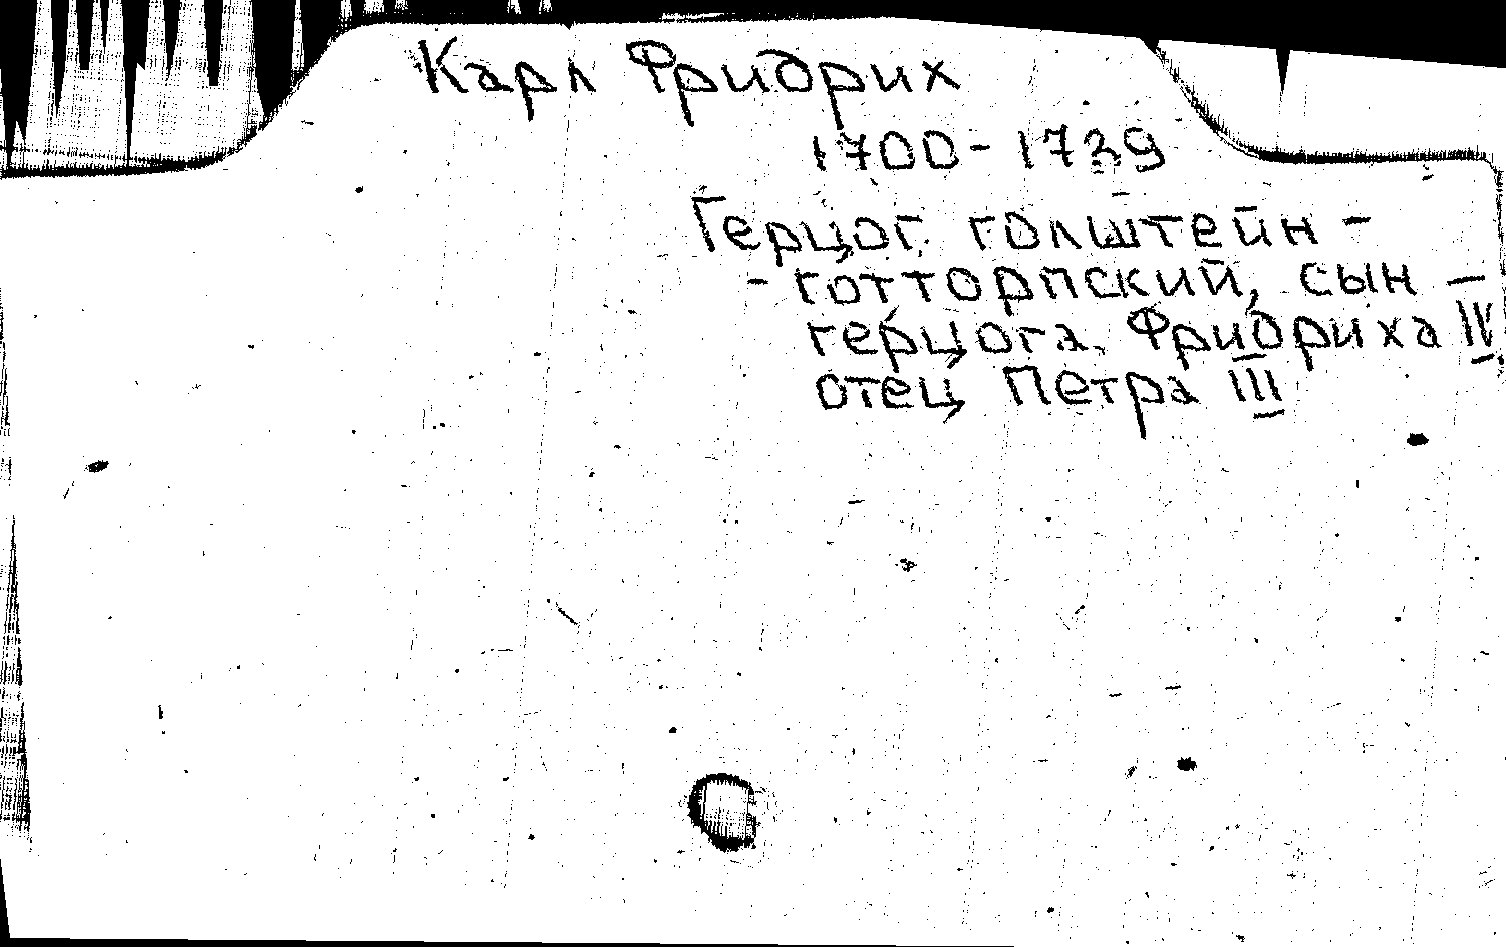 Карл Фридрих
1700-1739
Герцог голштейн-
-готторпский, сын
герцога Фридриха IV,
отец Петра III